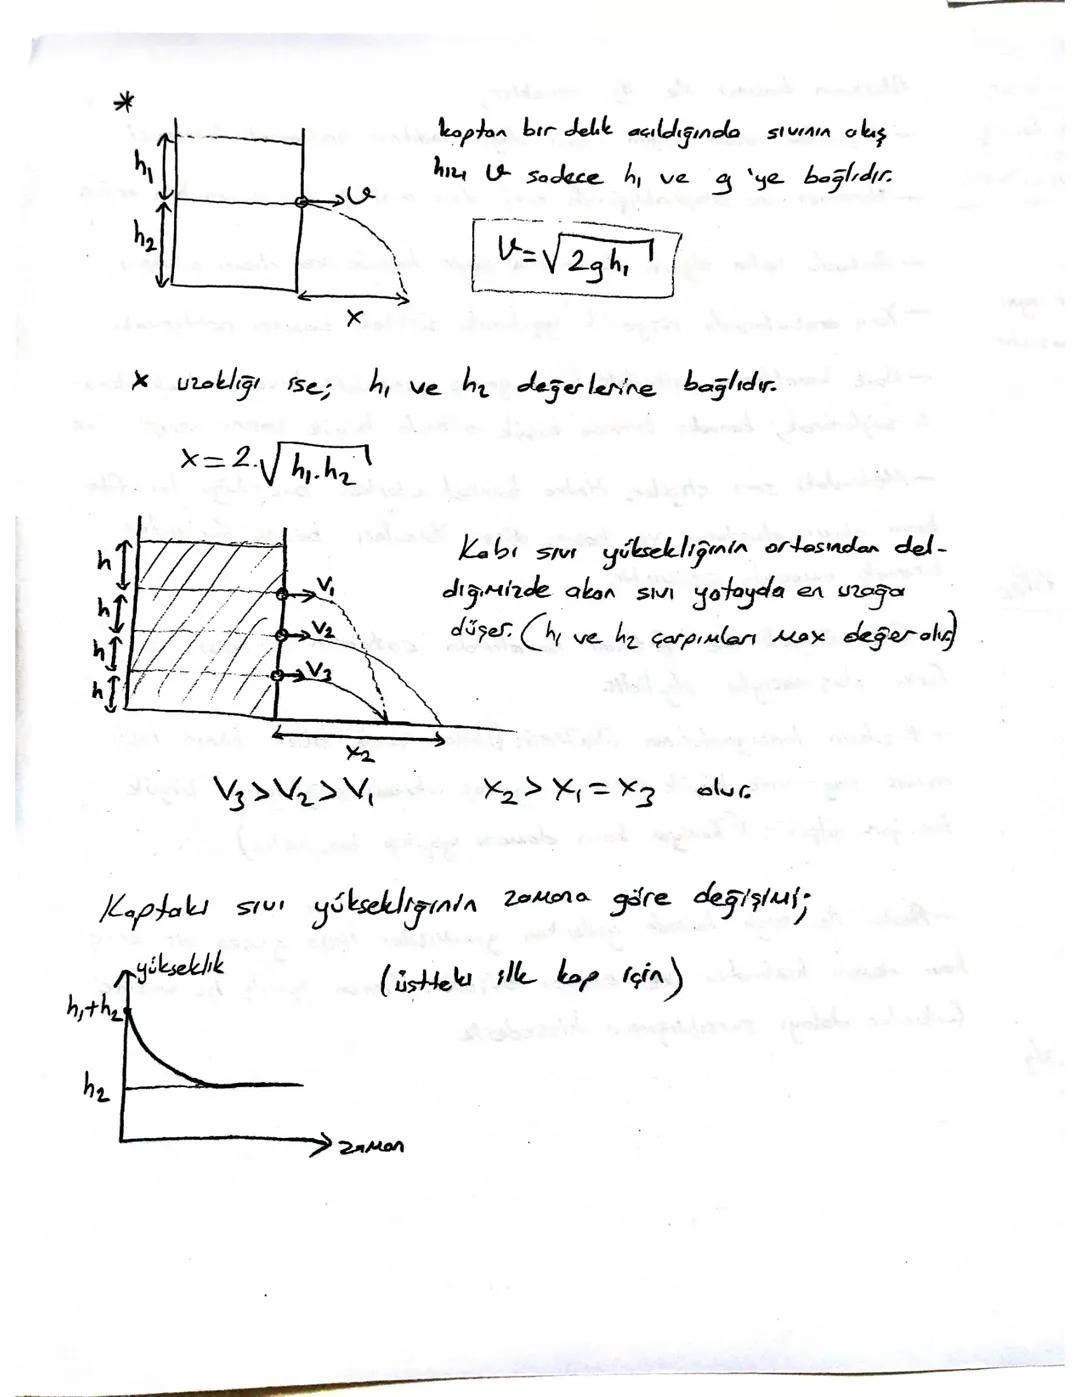 *
kaptan bir delik açıldığında sıvının akış
hızı v sadece h₁ ve g 'ye bağlıdır.
h₁
v
h₂
V=√2gh₁
x
x uzaklığı ise; h₁ ve h₂ değerlerine bağlıdır.
x=2.√h₁.h₂
Kabı sıvı yüksekliğinin ortasından del-
diğimizde akan sıvı yatayda en uzağa
düşer. (h₁ ve h₂ çarpımları max değer alır)
h
V₁
h
V₂
h
V₃
h
x₂
V₃>V₂>V₁
x₂>x₁=x₃ olur.
Kaptaki sıvı yüksekliğinin zamana göre değişimi;
yükseklik
(üstteki ilk kap için)
h₁+h₂
h₂
zaman